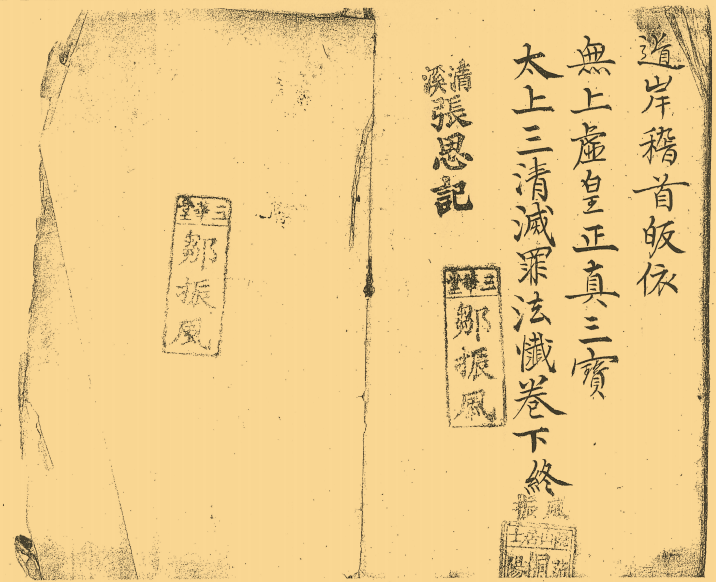 道岸稽首皈依
無上虛皇正真三寶
太上三清滅罪法懺卷下終
清溪
張思記
三華堂
鄒振風
振風
三華堂
鄒振風